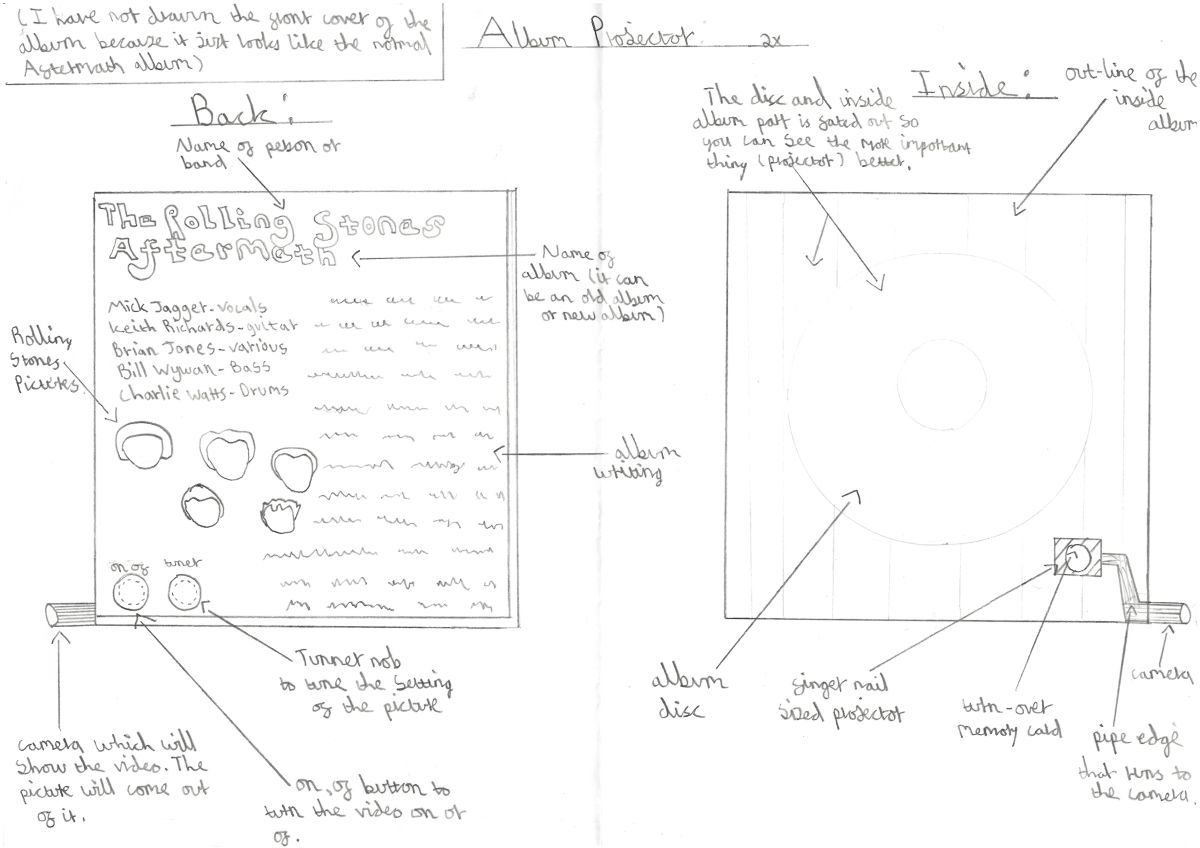 (I have not drawn the front cover of the
album because it just looks like the normal
Aftermath album)
Album Projector. 2x
Back:
Name of person or
band
The Rolling Stones
Aftermath
Name of
album (it can
be an old album
or new album)
Mick Jagger-vocals
Keith Richards-guitar
Brian Jones-various
Bill Wywan-Bass
Charlie Watts-Drums
Rolling
Stones
Pictures.
album
writing
on of
tuner
Tunner nob
to tune the setting
of the picture
camera which will
show the video. The
picture will come out
of it.
on, of button to
turn the video on or
of.
Inside:
The disc and inside
album part is fated out so
you can see the more important
thing (projector) better.
out-line of the
inside
album
album
disc
finger nail
sized projector
turn-over
memory card
pipe edge
that runs to
the camera.
camera